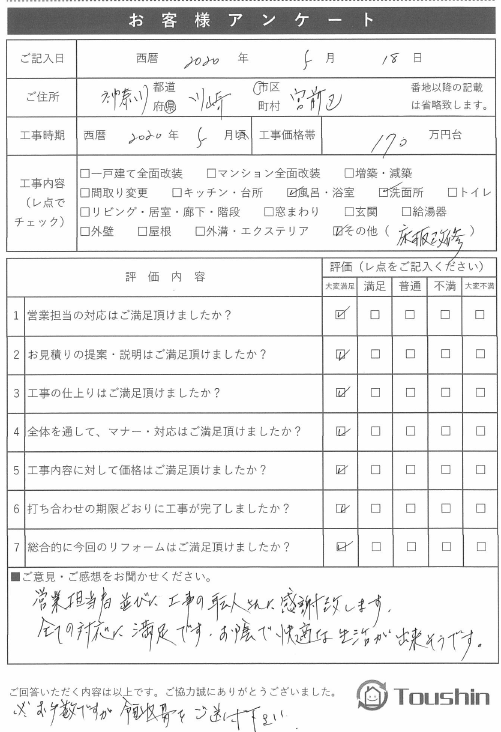 お客様アンケート
ご記入日 西暦 2020 年 5 月 18 日
ご住所 神奈川 都道府県 川崎 市区町村 宮前区 番地以降の記載は省略致します。
工事時期 西暦 2020 年 5 月頃 工事価格帯 170 万円台
工事内容（レ点でチェック）
□一戸建て全面改装 □マンション全面改装 □増築・減築
□間取り変更 □キッチン・台所 ☑風呂・浴室 ☑洗面所 □トイレ
□リビング・居室・廊下・階段 □窓まわり □玄関 □給湯器
□外壁 □屋根 □外溝・エクステリア ☑その他（床板改修）
評価内容 評価（レ点をご記入ください）
大変満足 満足 普通 不満 大変不満
1 営業担当の対応はご満足頂けましたか？ ☑ □ □ □ □
2 お見積りの提案・説明はご満足頂けましたか？ ☑ □ □ □ □
3 工事の仕上りはご満足頂けましたか？ ☑ □ □ □ □
4 全体を通して、マナー・対応はご満足頂けましたか？ ☑ □ □ □ □
5 工事内容に対して価格はご満足頂けましたか？ ☑ □ □ □ □
6 打ち合わせの期限どおりに工事が完了しましたか？ ☑ □ □ □ □
7 総合的に今回のリフォームはご満足頂けましたか？ ☑ □ □ □ □
■ご意見・ご感想をお聞かせください。
営業担当者並びに工事の 感謝致します。
全ての対応に満足です。お陰で快適な生活が出来そうです。
ご回答いただく内容は以上です。ご協力誠にありがとうございました。
Toushin
※お手数ですが領収書をご送付下さい